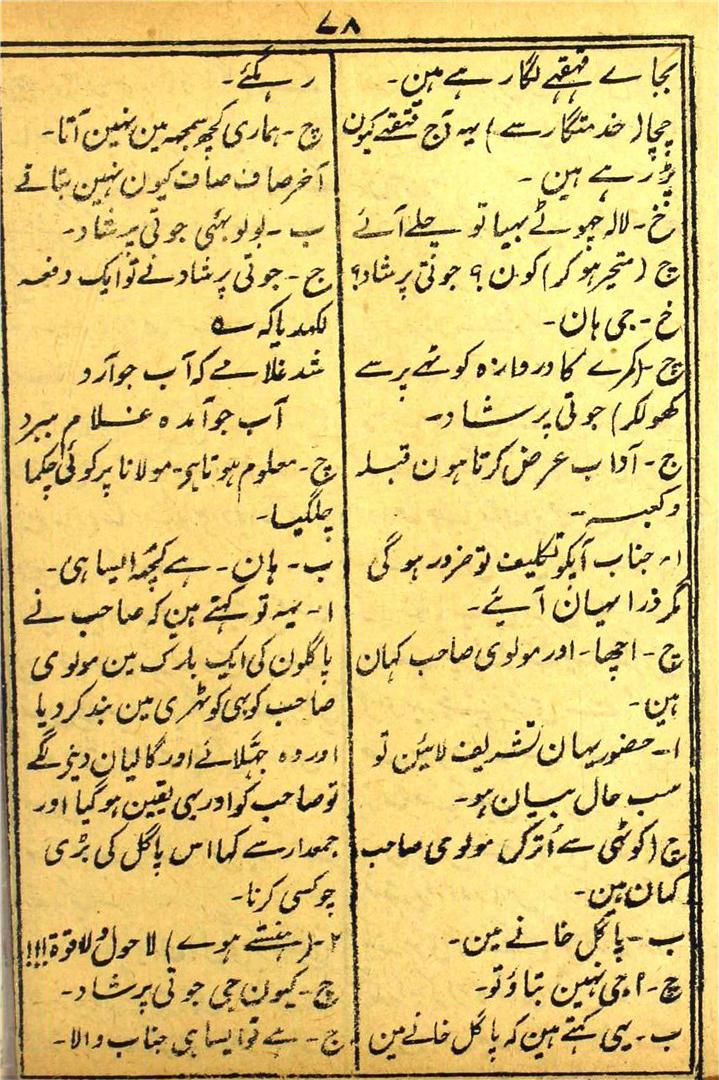 ۷۸
بجاے قہقہے لگا رہے ہین۔
چچا (خدمتگار سے) یہ آج قہقہے کیون
پڑ رہے ہین۔
خ۔ لالہ چھوٹے بھیا تو چلے آئے
چ (متحیر ہو کر) کون ؟ جوتی پرشاد؟
خ۔ جی ہان۔
چ۔ (کمرے کا دروازہ کوٹھے پر سے
کھولکر) جوتی پرشاد۔
ج۔ آداب عرض کرتا ہون قبلہ
وکعبہ۔
ا۔ جناب آپکو تکلیف تو ضرور ہوگی
مگر ذرا یہان آیئے۔
چ۔ اچھا۔ اور مولوی صاحب کہان
ہین۔
ا۔ حضور یہان تشریف لائین تو
سب حال بیان ہو۔
چ (کوٹھی سے اُتر کر) مولوی صاحب
کہان ہین۔
ب۔ پاگل خانے مین۔
چ۔ اجی نہین بتاؤ تو۔
ب۔ یہی کہتے ہین کہ پاگل خانے مین
رہگئے۔
چ۔ ہماری کچھ سمجھ مین نہین آتا۔
آخر صاف صاف کیون نہین بتاتے
ب۔ بولو بھئی جوتی پرشاد۔
ج۔ جوتی پرشاد نے تو ایک دفعہ
کہدیا کہ ؎
شد غلامے کہ آب جو آرد
آب جو آمدہ غلام ببرد
چ۔ معلوم ہوتا ہی۔ مولانا پر کوئی چکما
چلگیا۔
ب۔ ہان۔ ہے کچھ ایسا ہی۔
ا۔ یہ تو کہتے ہین کہ صاحب نے
پاگلون کی ایک بارک مین مولوی
صاحب کو بھی کوٹھری مین بند کر دیا
اور وہ جھلائے اور گالیان دینے لگے
تو صاحب کو اور بھی یقین ہو گیا اور
جمعدار سے کہا اس پاگل کی بڑی
چوکسی کرنا۔
۲۔ (ہنستے ہوے) لاحول ولا قوۃ!!!
چ۔ کیون جی جوتی پرشاد۔
ج۔ ہے تو ایسا ہی جناب والا۔